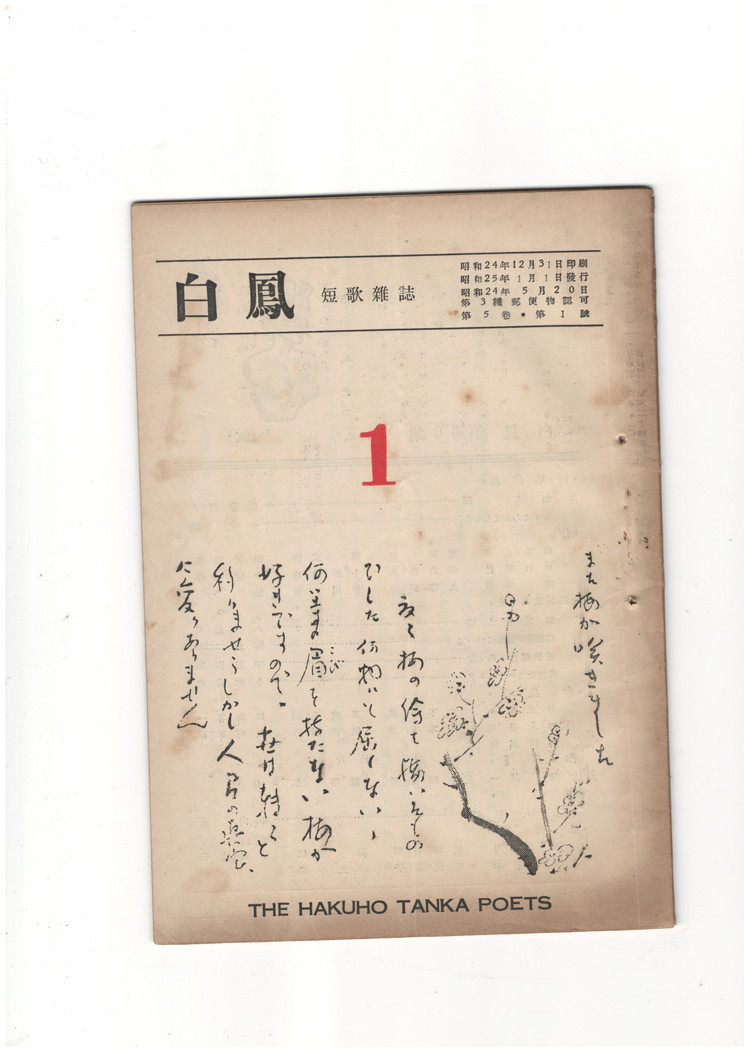 白鳳 短歌雜誌
昭和24年12月31日印刷
昭和25年1月1日發行
昭和24年5月20日
第3種郵便物認可
第5卷・第1號
1
また梅が咲きました
梅の繪を描いたもの
何物にも屈しない、
何よりも眉を持たない梅が
こび
好きですので。世は轉々と
移りませうしかし人間の眞實、
に變りありません
THE HAKUHO TANKA POETS